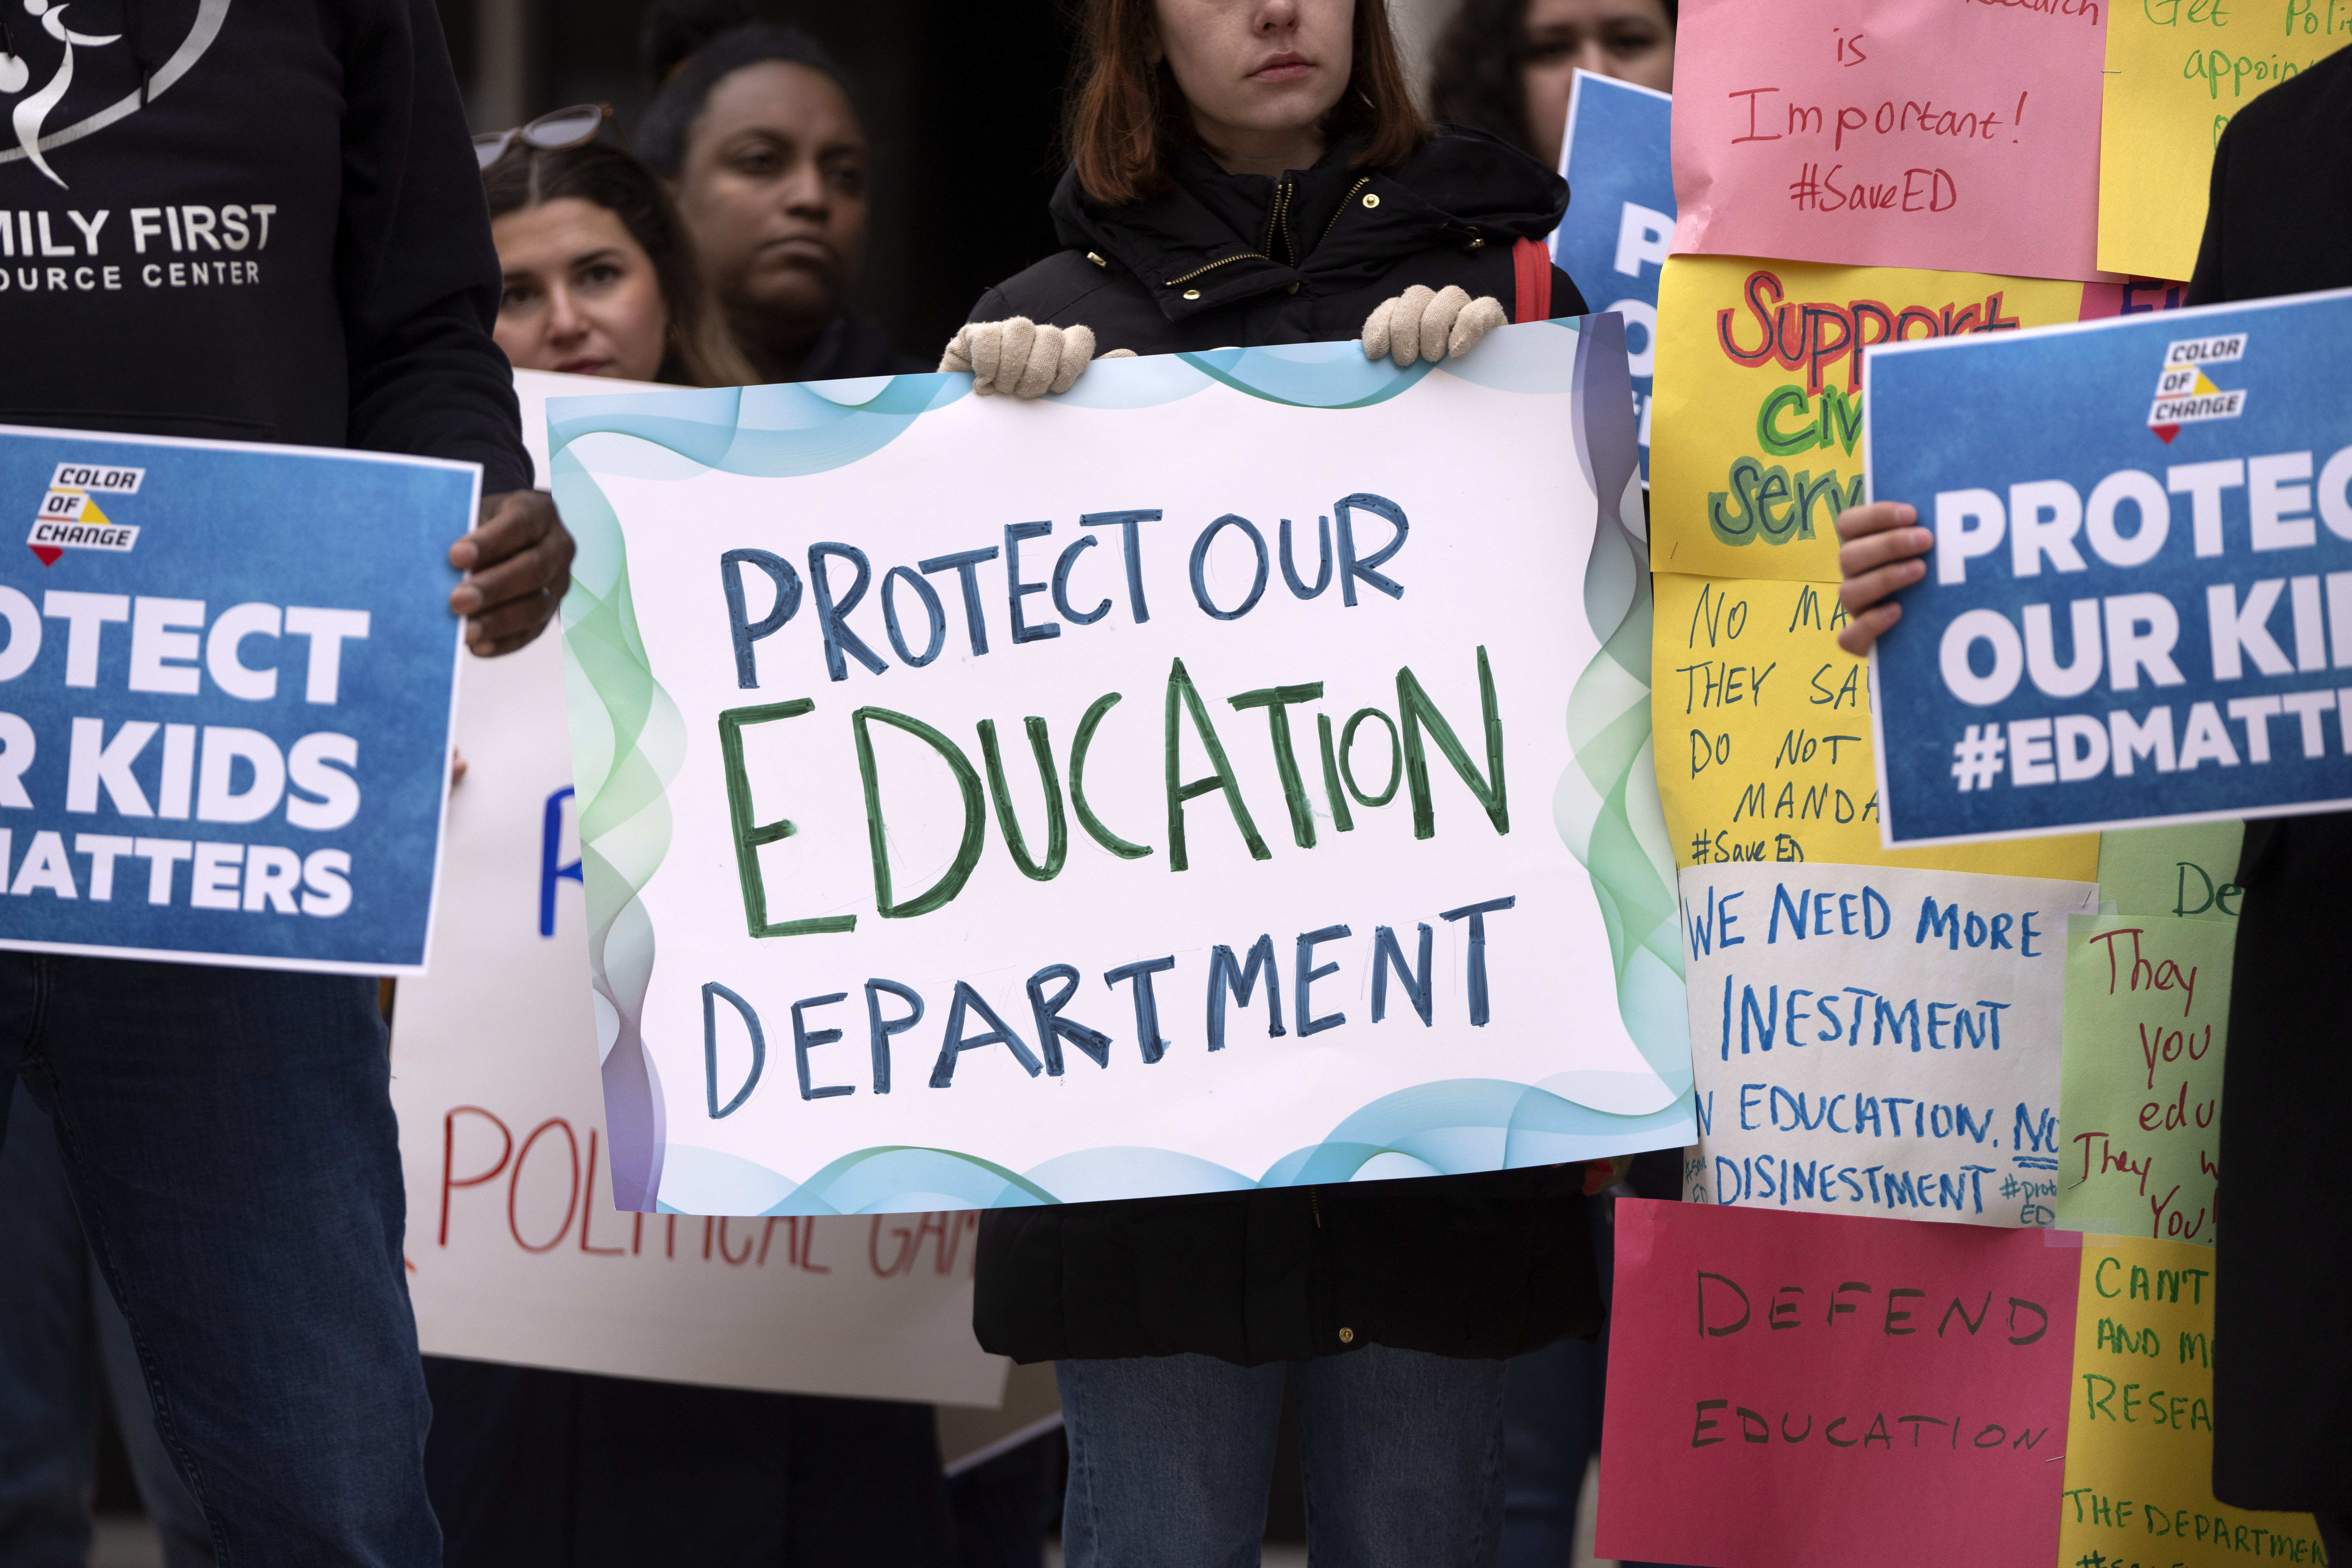 MILY FIRST
OURCE CENTER
COLOR
OF
CHANGE
OTECT
R KIDS
MATTERS
POLITICAL GAM
PROTECT OUR
EDUCATION
DEPARTMENT
is
Important!
#SaveED
Get Poli
appoin
Support
Civ
Serv
NO MA
THEY SA
DO NOT
MANDA
#Save ED
WE NEED MORE
INESTMENT
N EDUCATION. NO
DISINESTMENT
#prot
ED
DEFEND
EDUCATION
COLOR
OF
CHANGE
PROTEC
OUR KI
#EDMATT
De
They
you
edu
They w
You!
CAN'T
AND M
RESEA
THE DEPARTMEN